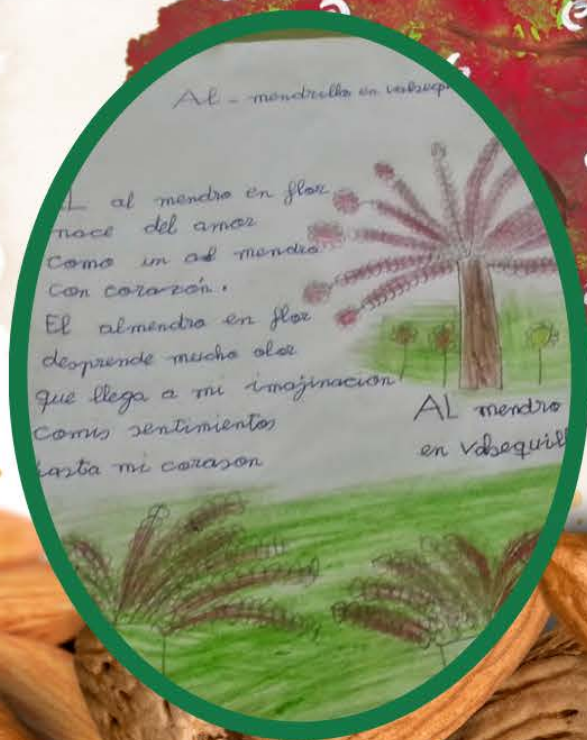 Al - mendrillo en
L al mendro en flor
nace del amor
como un al mendro
con corazón.
El almendro en flor
desprende mucho olor
que llega a mi imajinacion
comis sentimientos
asta mi corason
AL mendro
en